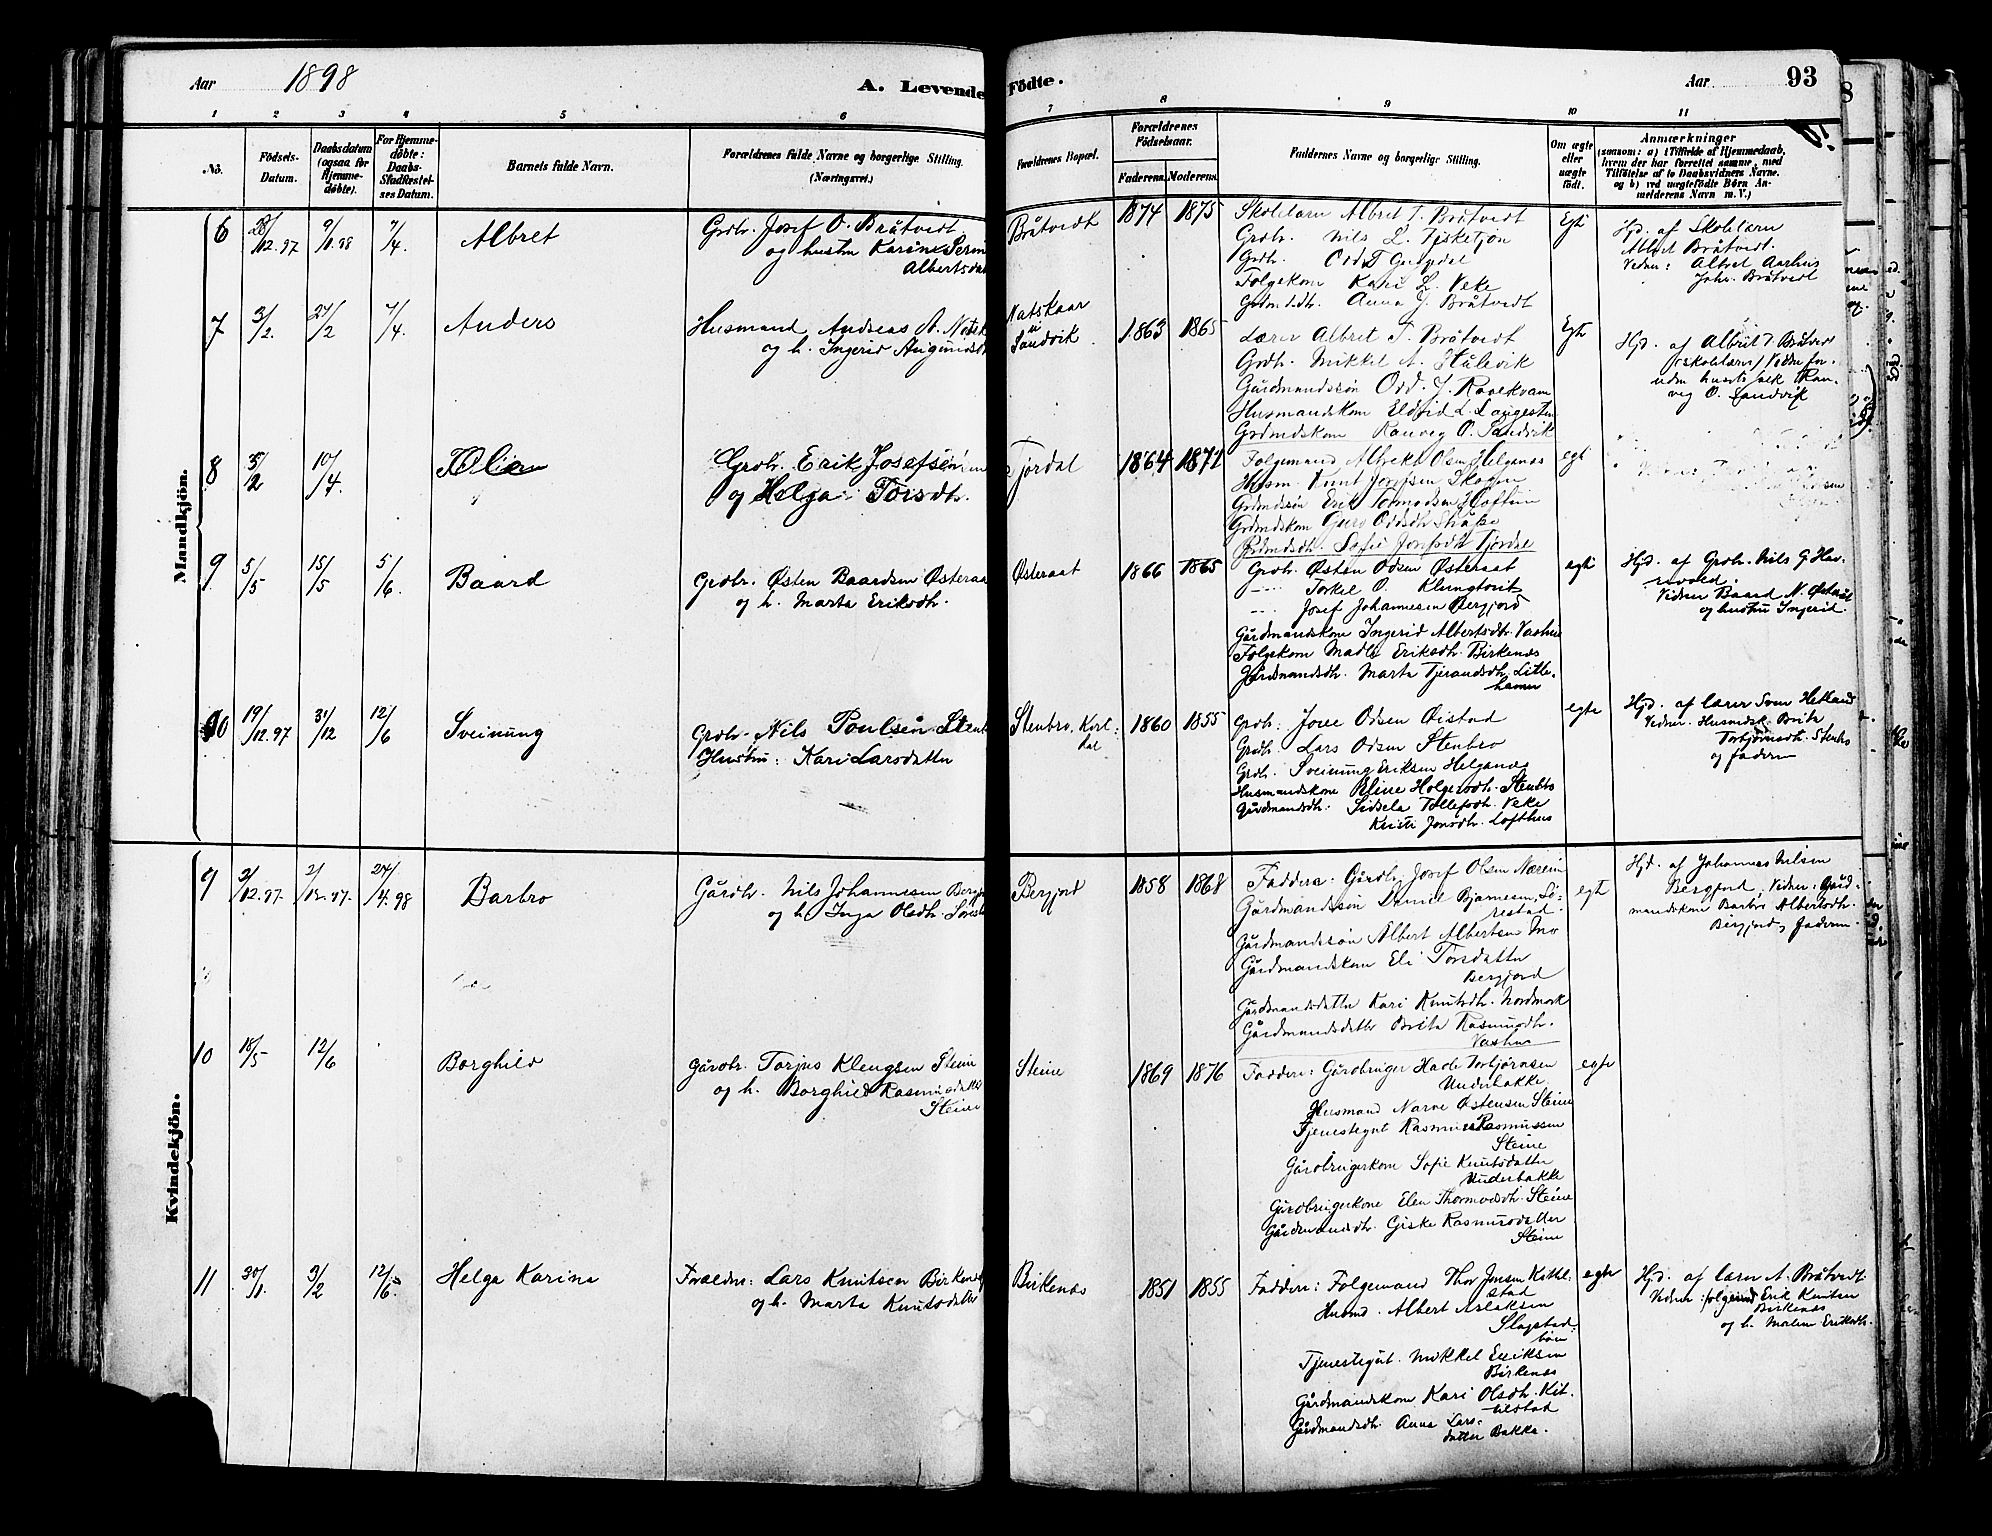 Aar 1898
A. Levende Födte.
Aar 93
1 2 3 4 5 6 7 8 9 10 11
No.
Födsels-Datum.
Daabsdatum (ogsaa for Hjemmedöbte).
For Hjemmedöbte: Daabs-Stadfæstelses Datum.
Barnets fulde Navn.
Forældrenes fulde Navne og borgerlige Stilling. (Næringsvei.)
Forældrenes Bopæl.
Forældrenes Födselsaar.
Faderens. Moderens.
Faddernes Navne og borgerlige Stilling.
Om ægte eller uægte födt.
Anmærkninger
(saasom: a) i Tilfælde af Hjemmedaab, hvem der har forrettet samme, med Tilföielse af to Daabsvidners Navne. og b) ved uægtefödte Börn Anmelderens Navn m. V.)
Mandkjön.
6 28/12.97 9/1.98 7/4. Albret
Grdbr. Josef O. Bråtvedt
og hustru Karine
Albertsdat
Bråtvedt 1874 1875
Skolelærer Albret T. Bråtvedt
Grdbr. Nils L. Fisketjøn
Grdbr. Odd T.
Folgekone Kari L. Veke
Anna J. Bråtvedt
Egte
Hjd. af Skolelærer
Albret Bråtvedt.
Vidner: Albret Aarhus
Joh. Bråtvedt
7 3/2. 24/2 7/4. Anders
Husmand Andreas A. Natsk
og h. Ingerid
Natskaar
Sandvik
1863 1865
Lærer Albret T. Bråtvedt
Grdbr. Mikkel A. Hålevik
Gårdmandssøn Odd J.
Husmandskone Eldfrid L.
Grdmdskone Ranveig O. Sandvik
Egte
Hjd. af Albrit T. Bråtvedt
(skolelærer) Vidne for-
uden
veig O. Sandvik
8 5/2 10/4. Olea
Grdbr. Erik Josefsen
og Helga Torsdtr.
Tjordal 1864 1871
Folgemand Olsen Helganes
Husm. Knut Josefsen Skogen
Grdmdssøn Erik Tormodsen
Grdmdskone Guro Oddsdtr
Grdmdsdtr. Sofie Josefsdtr Tjordal
egte
9 5/5 15/5 5/6. Baard
Grdbr. Østen Baardsen Østeraa
og h. Marta Eriksdtr.
Østeraat 1866 1865
Grdbr. Østen Odsen Østeraat
Torkel O. Klungtveit
Josef Johannesen Bergjord
Gårdmandskone Ingerid Albertsdtr. Vashus
Folgekone Madli Eriksdtr. Birkenæs
Gårdmandsdtr. Marta Tjerandsdtr. Litle-
hamar
egte
Hjd. af Grdbr. Nils G
Vidner Baard N. Østeraat
og hustru Ingerid.
10 19/12.97 31/12 12/6 Sveinung
Grdbr. Nils Poulsen Stenb
Hustru: Kari Larsdatter
Stenbro, Kort-
dal
1860 1855
Grdbr. Jone Odsen Øistad
Grdbr. Lars Odsen Stenbro
Grdbr. Sveinung Eriksen Helganæs
Husmandskone Eline Holgersdtr. Stenbro
Gårdmandsdtr. Sidsela Tollefsdtr. Veke
Kristi Jonsdtr. Lofthus
egte
Hjd. af lærer Sven Hetland
Vidner. Husmdsk. Brita
Torbjörnsdtr. Stenbro
og faderen
Kvindekjön.
9 2/12.97 2/12.97. 24/4.98 Barbro
Gårdbr. Nils Johannesen Bergj
og h. Inga Olsdtr.
Bergjord 1858 1868
Faddere: Gårdbr. Josef Olsen
Gårdmandssøn Daniel Bjørnesen, Sö-
restad.
Gårdmandssøn Albert Albertsen Mo
Gårdmandskone Eli Torsdatter
Bergjord
Gårdmandsdatter Kari Knutsdtr. Nordmork
Gårdmandsdatter Brita Rasmusdtr.
Vashus
egte
Hjd. af Johannes Nilsen
Bergjord, Vidner: Gård-
mandskone Barbro Albertsdtr.
Bergjord, faderen
10 18/5- 12/6 Borghild
Gårdbr. Torjus Klengsen Steine
og h. Borghild Rasmusdatter
Steine
Steine 1869 1876
Faddere: Gårdbruger Torbjørnsen
Underbakke
Husmand Narve Østensen Steine
Tjenestegut Rasmus Rasmussen
Steine
Gårdbrugerkone Sofie Knutsdatter
Underbakke
Gårdbrugerkone Elen Thormodsdtr. Steine
Gårdmandsdtr. Giske Rasmusdatter
Steine
egte
11 30/1. 3/2 12/6. Helga Karina
Forældre: Lars Knutsen Birkenæs
og h. Marta Knutsdatter
Birkenæs 1851 1855
Faddere: Folgemand Thor Jonsen Kittel-
stad
Husmd. Albert Aslaksen
Slagstad-
Tjenestegut. Mikkel Eriksen
Birkenæs
Gårdmandskone Kari Olsdtr. Kit-
telstad
Gårdmandsdtr. Anna Lars-
datter Bakka.
egte
Hjd. af lærer A. Bråtvedt
Vidner: folgemd Erik Knutsen
Birkenæs
og h. Malene Eriksdtr.